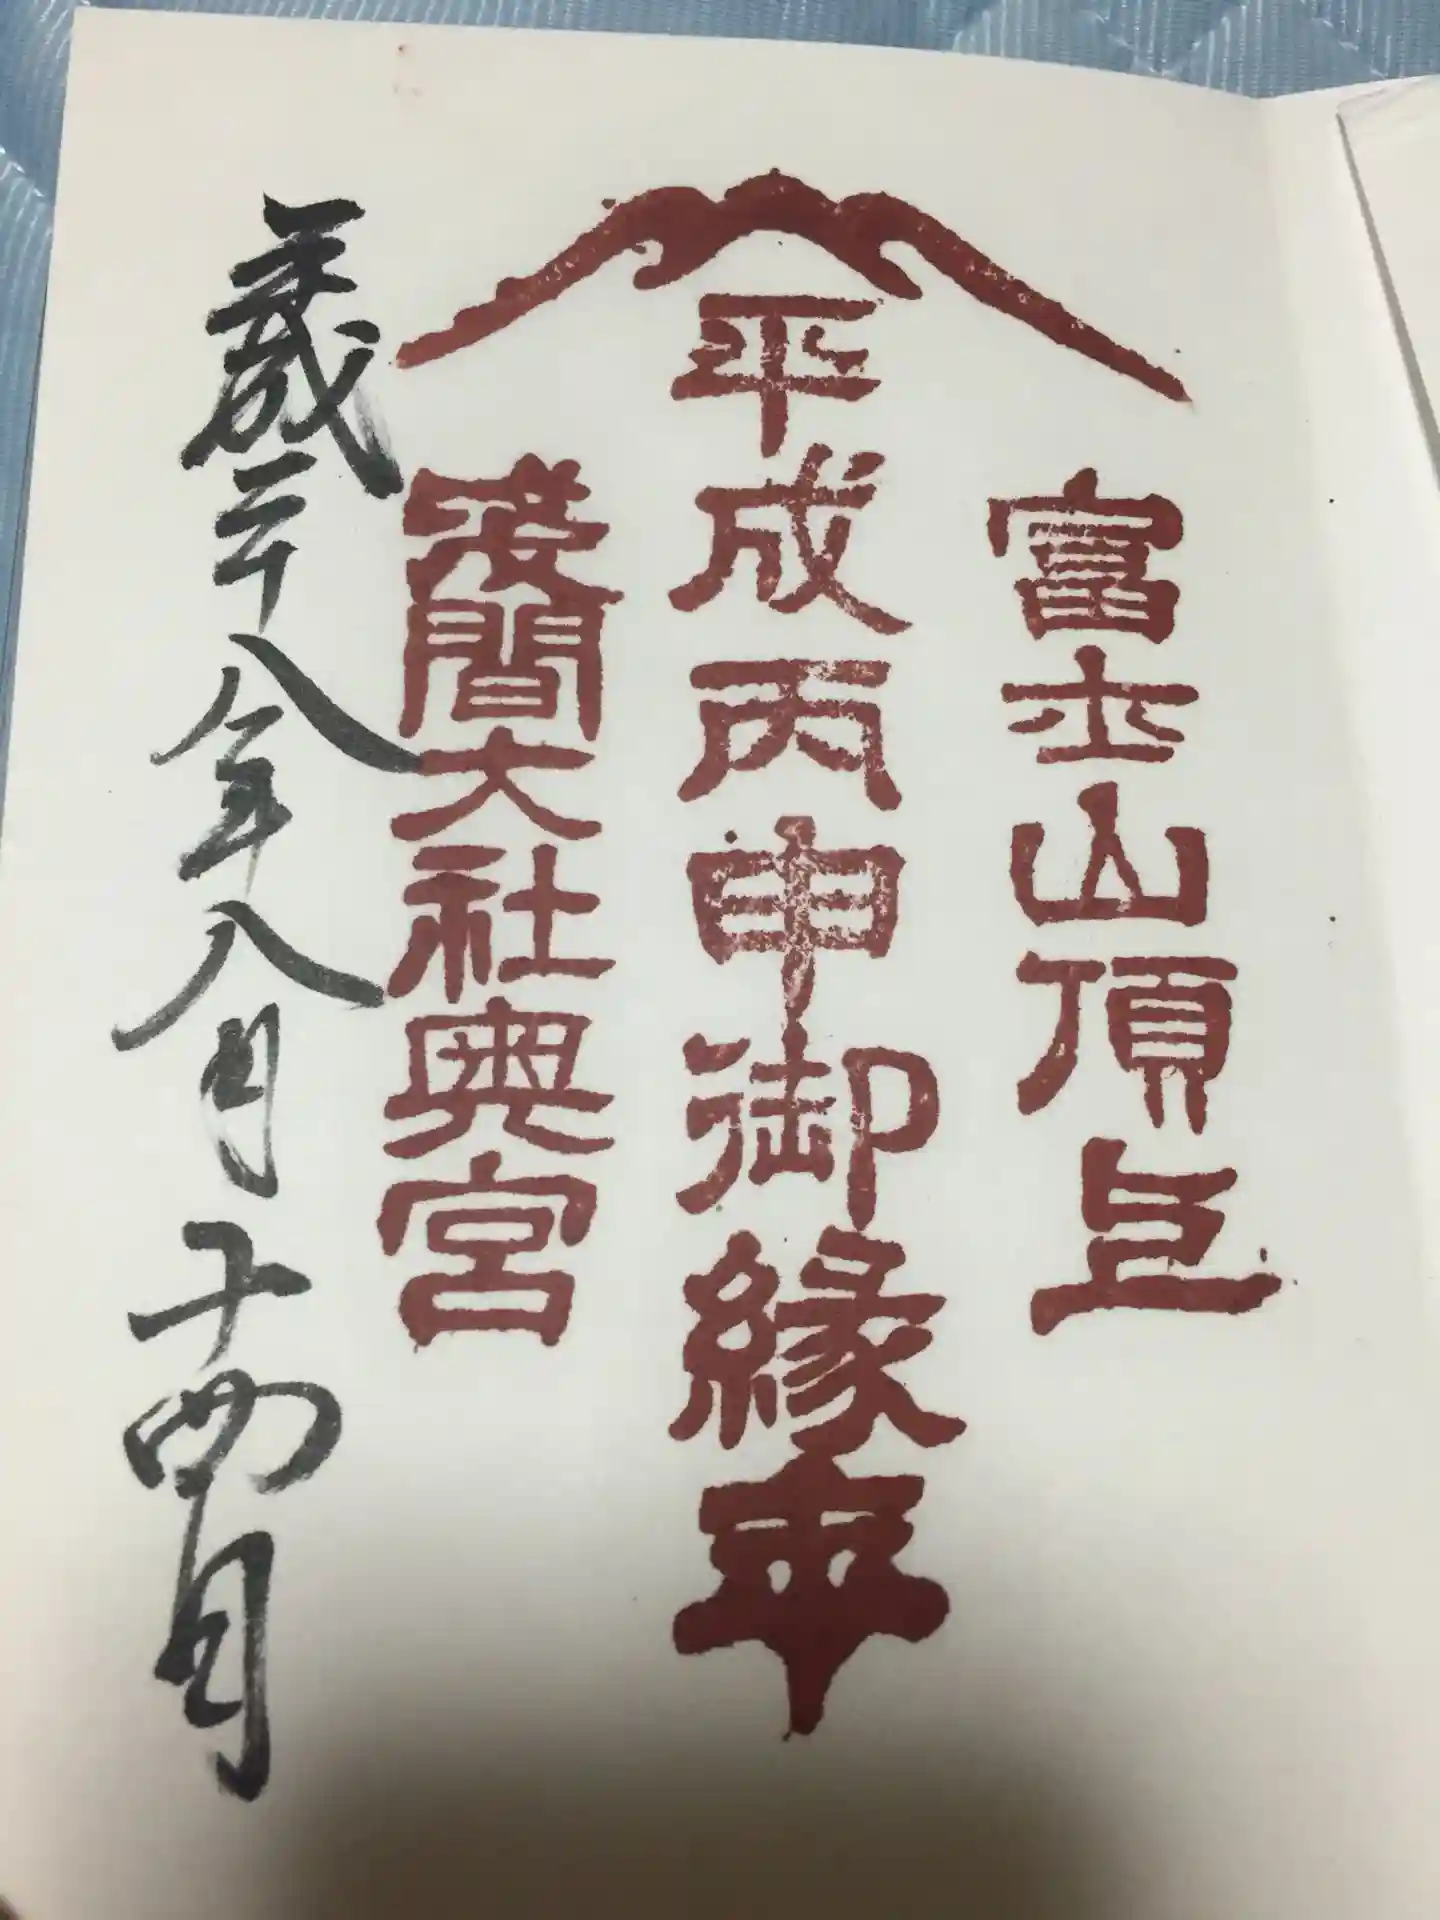 富士山頂上
平成丙申御縁年
淺間大社奥宮
歳二十八年八月十四日